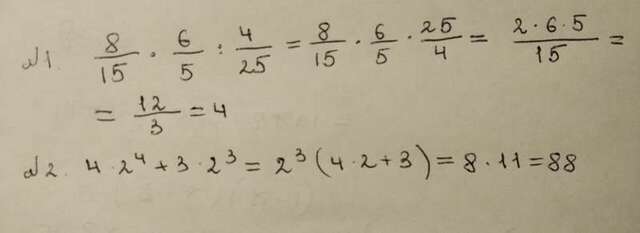 №1. 8/15 · 6/5 : 4/25 = 8/15 · 6/5 · 25/4 = 2·6·5/15 =
= 12/3 = 4
№2. 4·2⁴ + 3·2³ = 2³(4·2+3) = 8·11 = 88